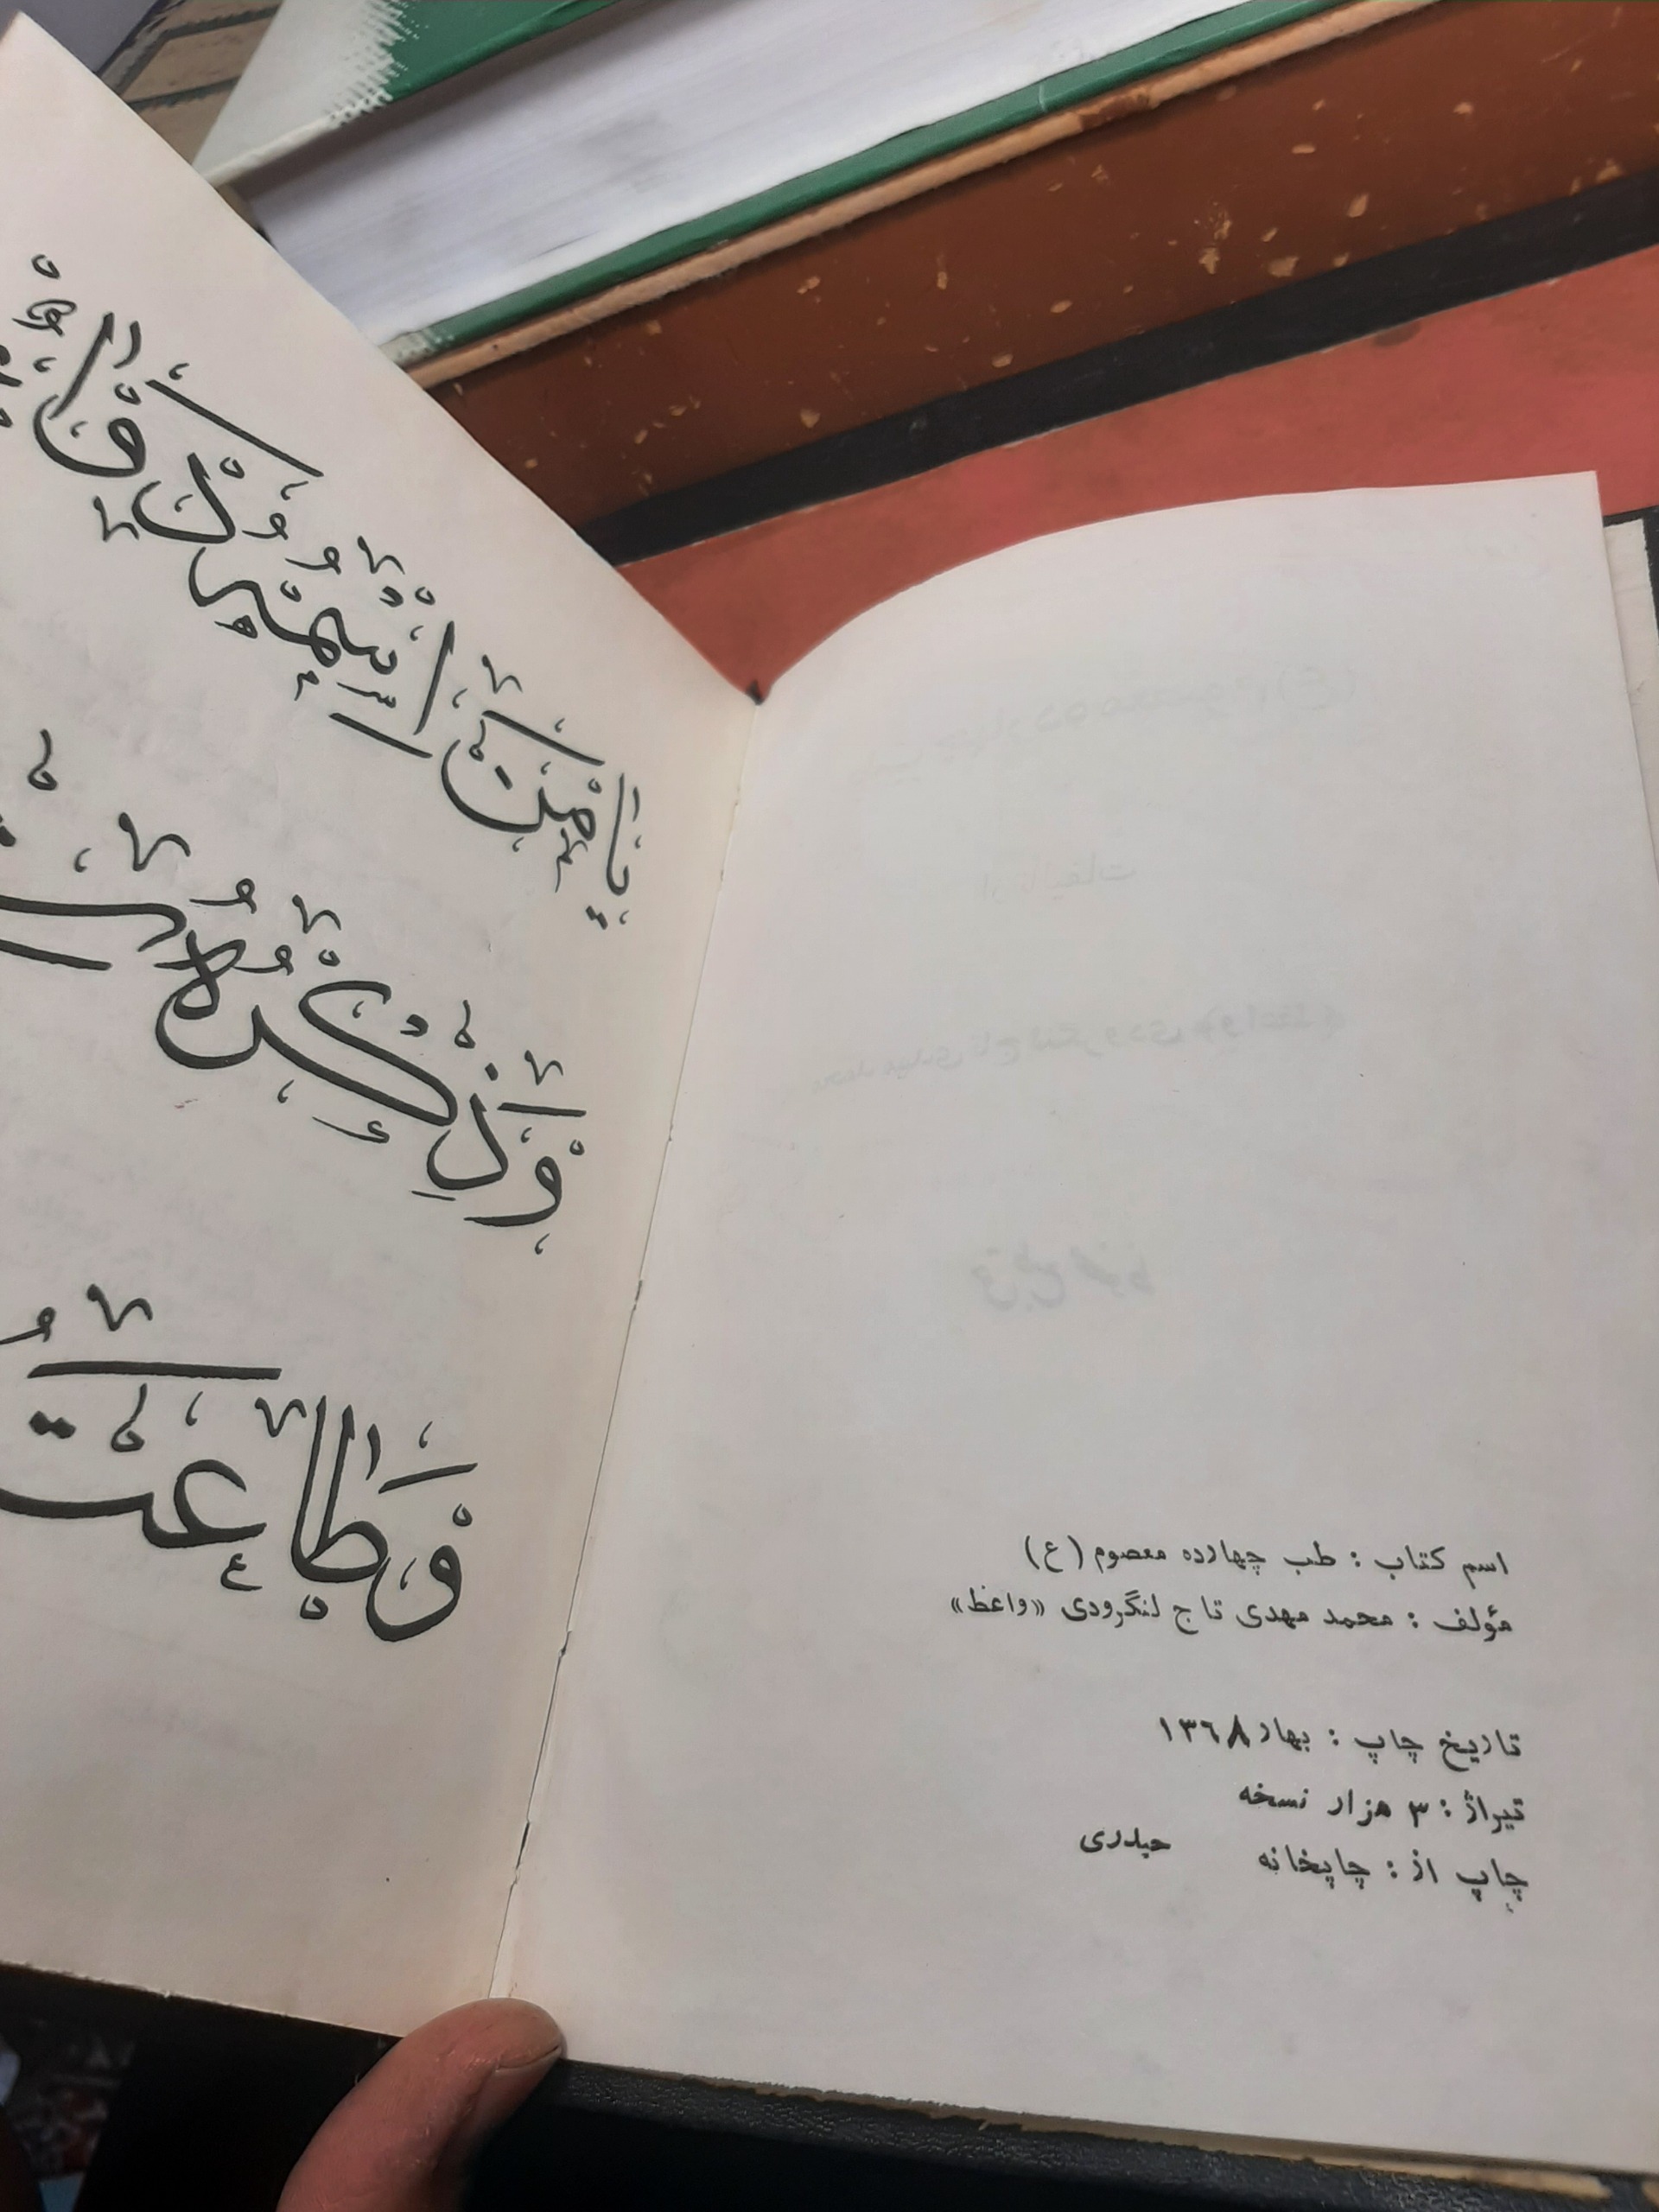 يا مَنِ اسْمُهُ دَوَاءٌ
وَذِكْرُهُ شِفَاءٌ
وَطَاعَتُهُ
اسم کتاب : طب چهارده معصوم (ع)
مؤلف : محمد مهدی تاج لنگرودی «واعظ»
تاریخ چاپ : بهار ۱۳٦۸
تیراژ : ۳ هزار نسخه
چاپ از : چاپخانه حیدری